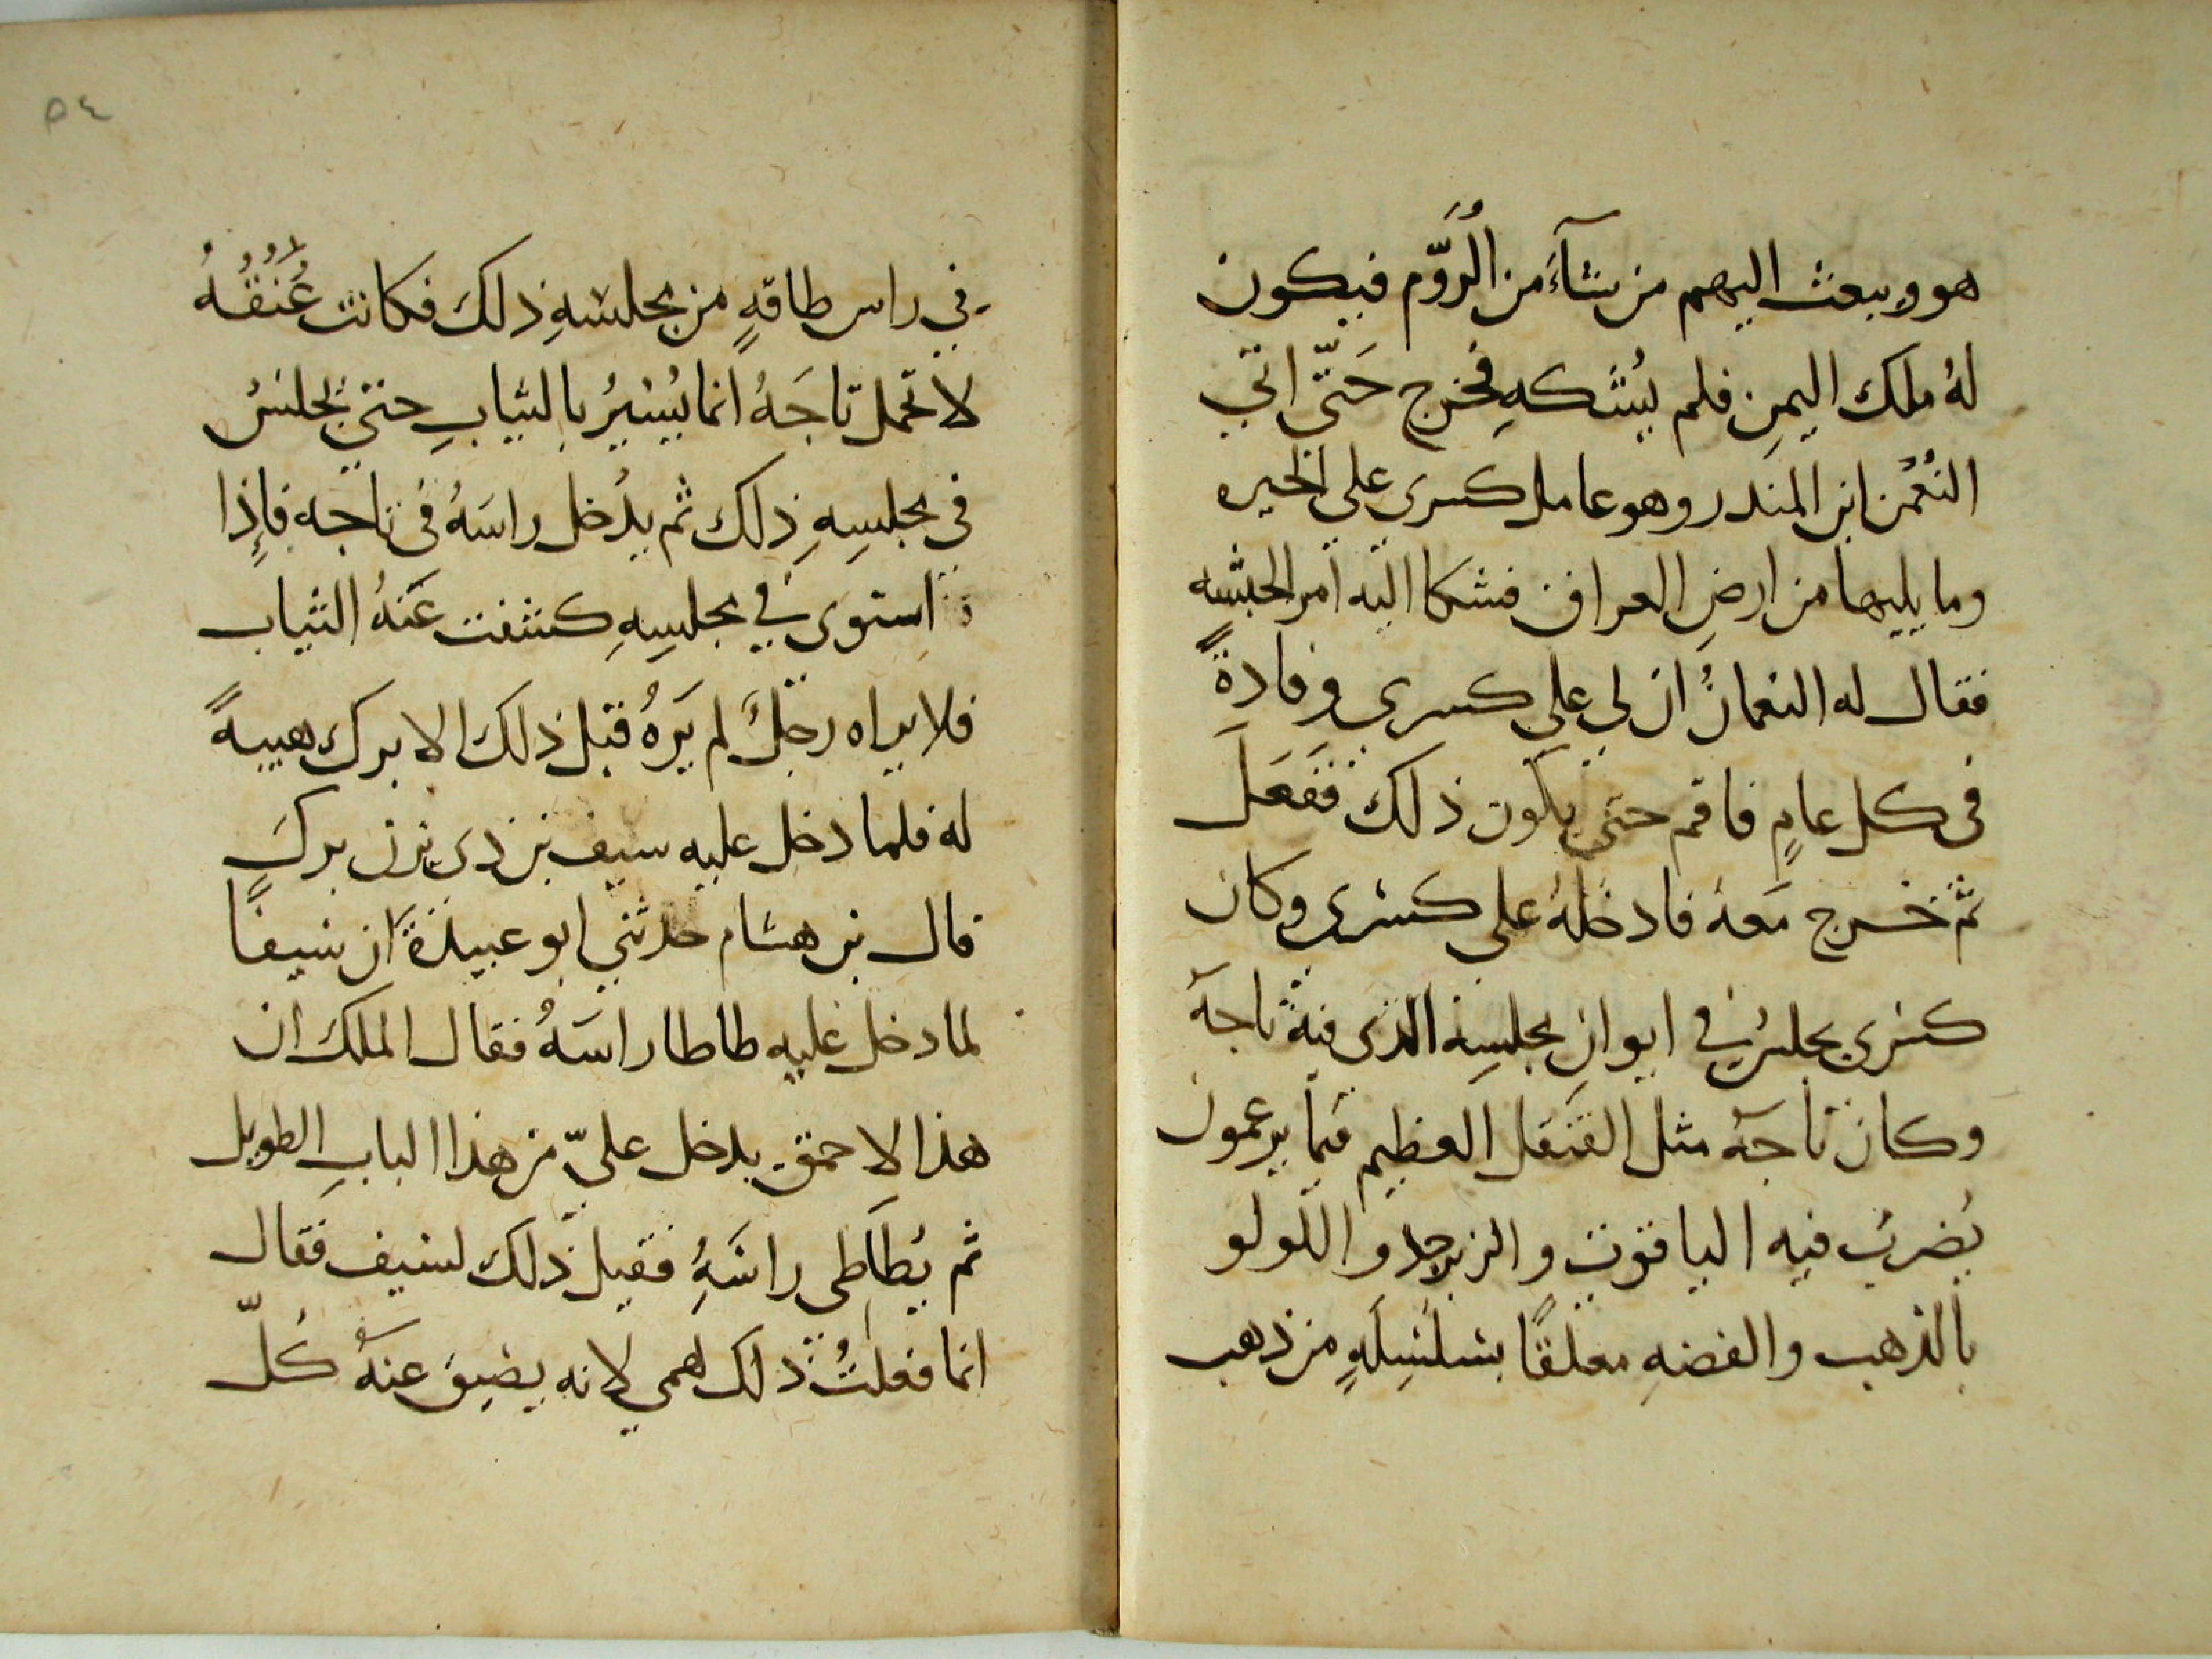 هو ويبعث اليهم من شآءَ من الرُّوَّم فيكون
لهُ ملك اليمنِ فلم يُشكهِ فخرج حَتّى اتى
النُعْمٰن ابن المنذر وهو عامل كسرى على الحيره
وما يليها من ارضِ العراق فشكا اليه امر الحبشه
فقال له النعمانُ ان لى على كسرى وفادةً
فى كل عامٍ فاقم حتى يكون ذلك ففَعَلَ
ثم خرج مَعهُ فادخلهُ على كسرى وكان
كسرى يجلسُ في ايوانِ مجلسِه الذى فيه تاجهُ
وكان تاجهُ مثل القنقل العظيم فيما يزعمون
يُضربُ فيه الياقوت والزبرجد واللولو
بالذهب والفضهِ معلقًا بسلسِلَهٍ من ذهب
٥٤
في راس طاقهٍ من مجلسهِ ذلك فكانت عُنُقُهُ
لا تحمل تاجَهُ انما يُستَرُ بالثيابِ حتى يجلسُ
فى مجلسِهِ ذلك ثم يدُخل راسَهُ فى تاجه فاِذا
استوى في مجلسِهِ كشفت عَنهُ الثياب
فلا يراه رجلٌ لم يَرهُ قبل ذلك الا برك هيبهً
له فلما دخل عليه سيف بن ذى يزن بركَ
قال بن هشام حدثني ابو عبيدة ان سيفًا
لما دخل عليه طاطا راسَهُ فقال الملك ان
هذا الاحمق يدخل علىّ من هذا البابِ الطويل
ثم يُطَاطِى راسَهُ فقيل ذلك لسيف فقال
انما فعلتُ ذلك لهمى لانه يضيق عنهُ كُلّ